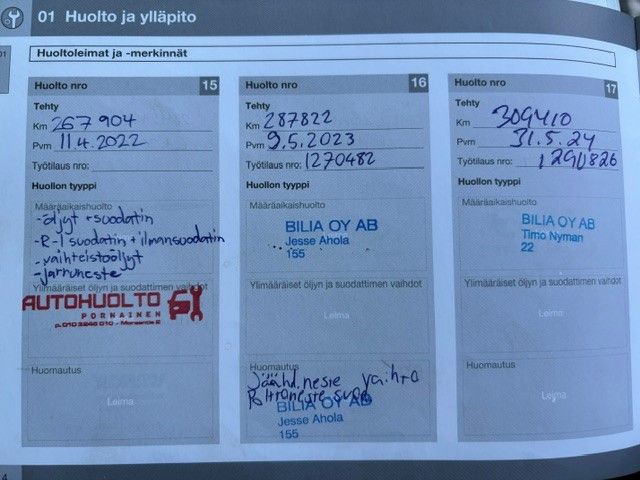 01 Huolto ja ylläpito
01
Huoltoleimat ja -merkinnät
Huolto nro 15
Tehty
Km 267 904
Pvm 11.4.2022
Työtilaus nro:
Huollon tyyppi
Määräaikaishuolto
-öljyt + suodatin
-R-l suodatin + ilmansuodatin
-vaihteistoöljyt
-Jarruneste
Ylimääräiset öljyn ja suodattimen vaihdot
AUTOHUOLTO
PORNAINEN
p. 010 3246 010 - Morsantie 2
Huomautus
Leima
Huolto nro 16
Tehty
Km 287822
Pvm 9.5.2023
Työtilaus nro: 1270482
Huollon tyyppi
Määräaikaishuolto
BILIA OY AB
Jesse Ahola
155
Ylimääräiset öljyn ja suodattimen vaihdot
Leima
Huomautus
Jäähd.neste vaihto
BILIA OY AB
Jesse Ahola
155
Huolto nro 17
Tehty
Km 309410
Pvm 31.5.24
Työtilaus nro:
Huollon tyyppi
Määräaikaishuolto
BILIA OY AB
Timo Nyman
22
Ylimääräiset öljyn ja suodattimen vaihdot
Leima
Huomautus
Leima
4